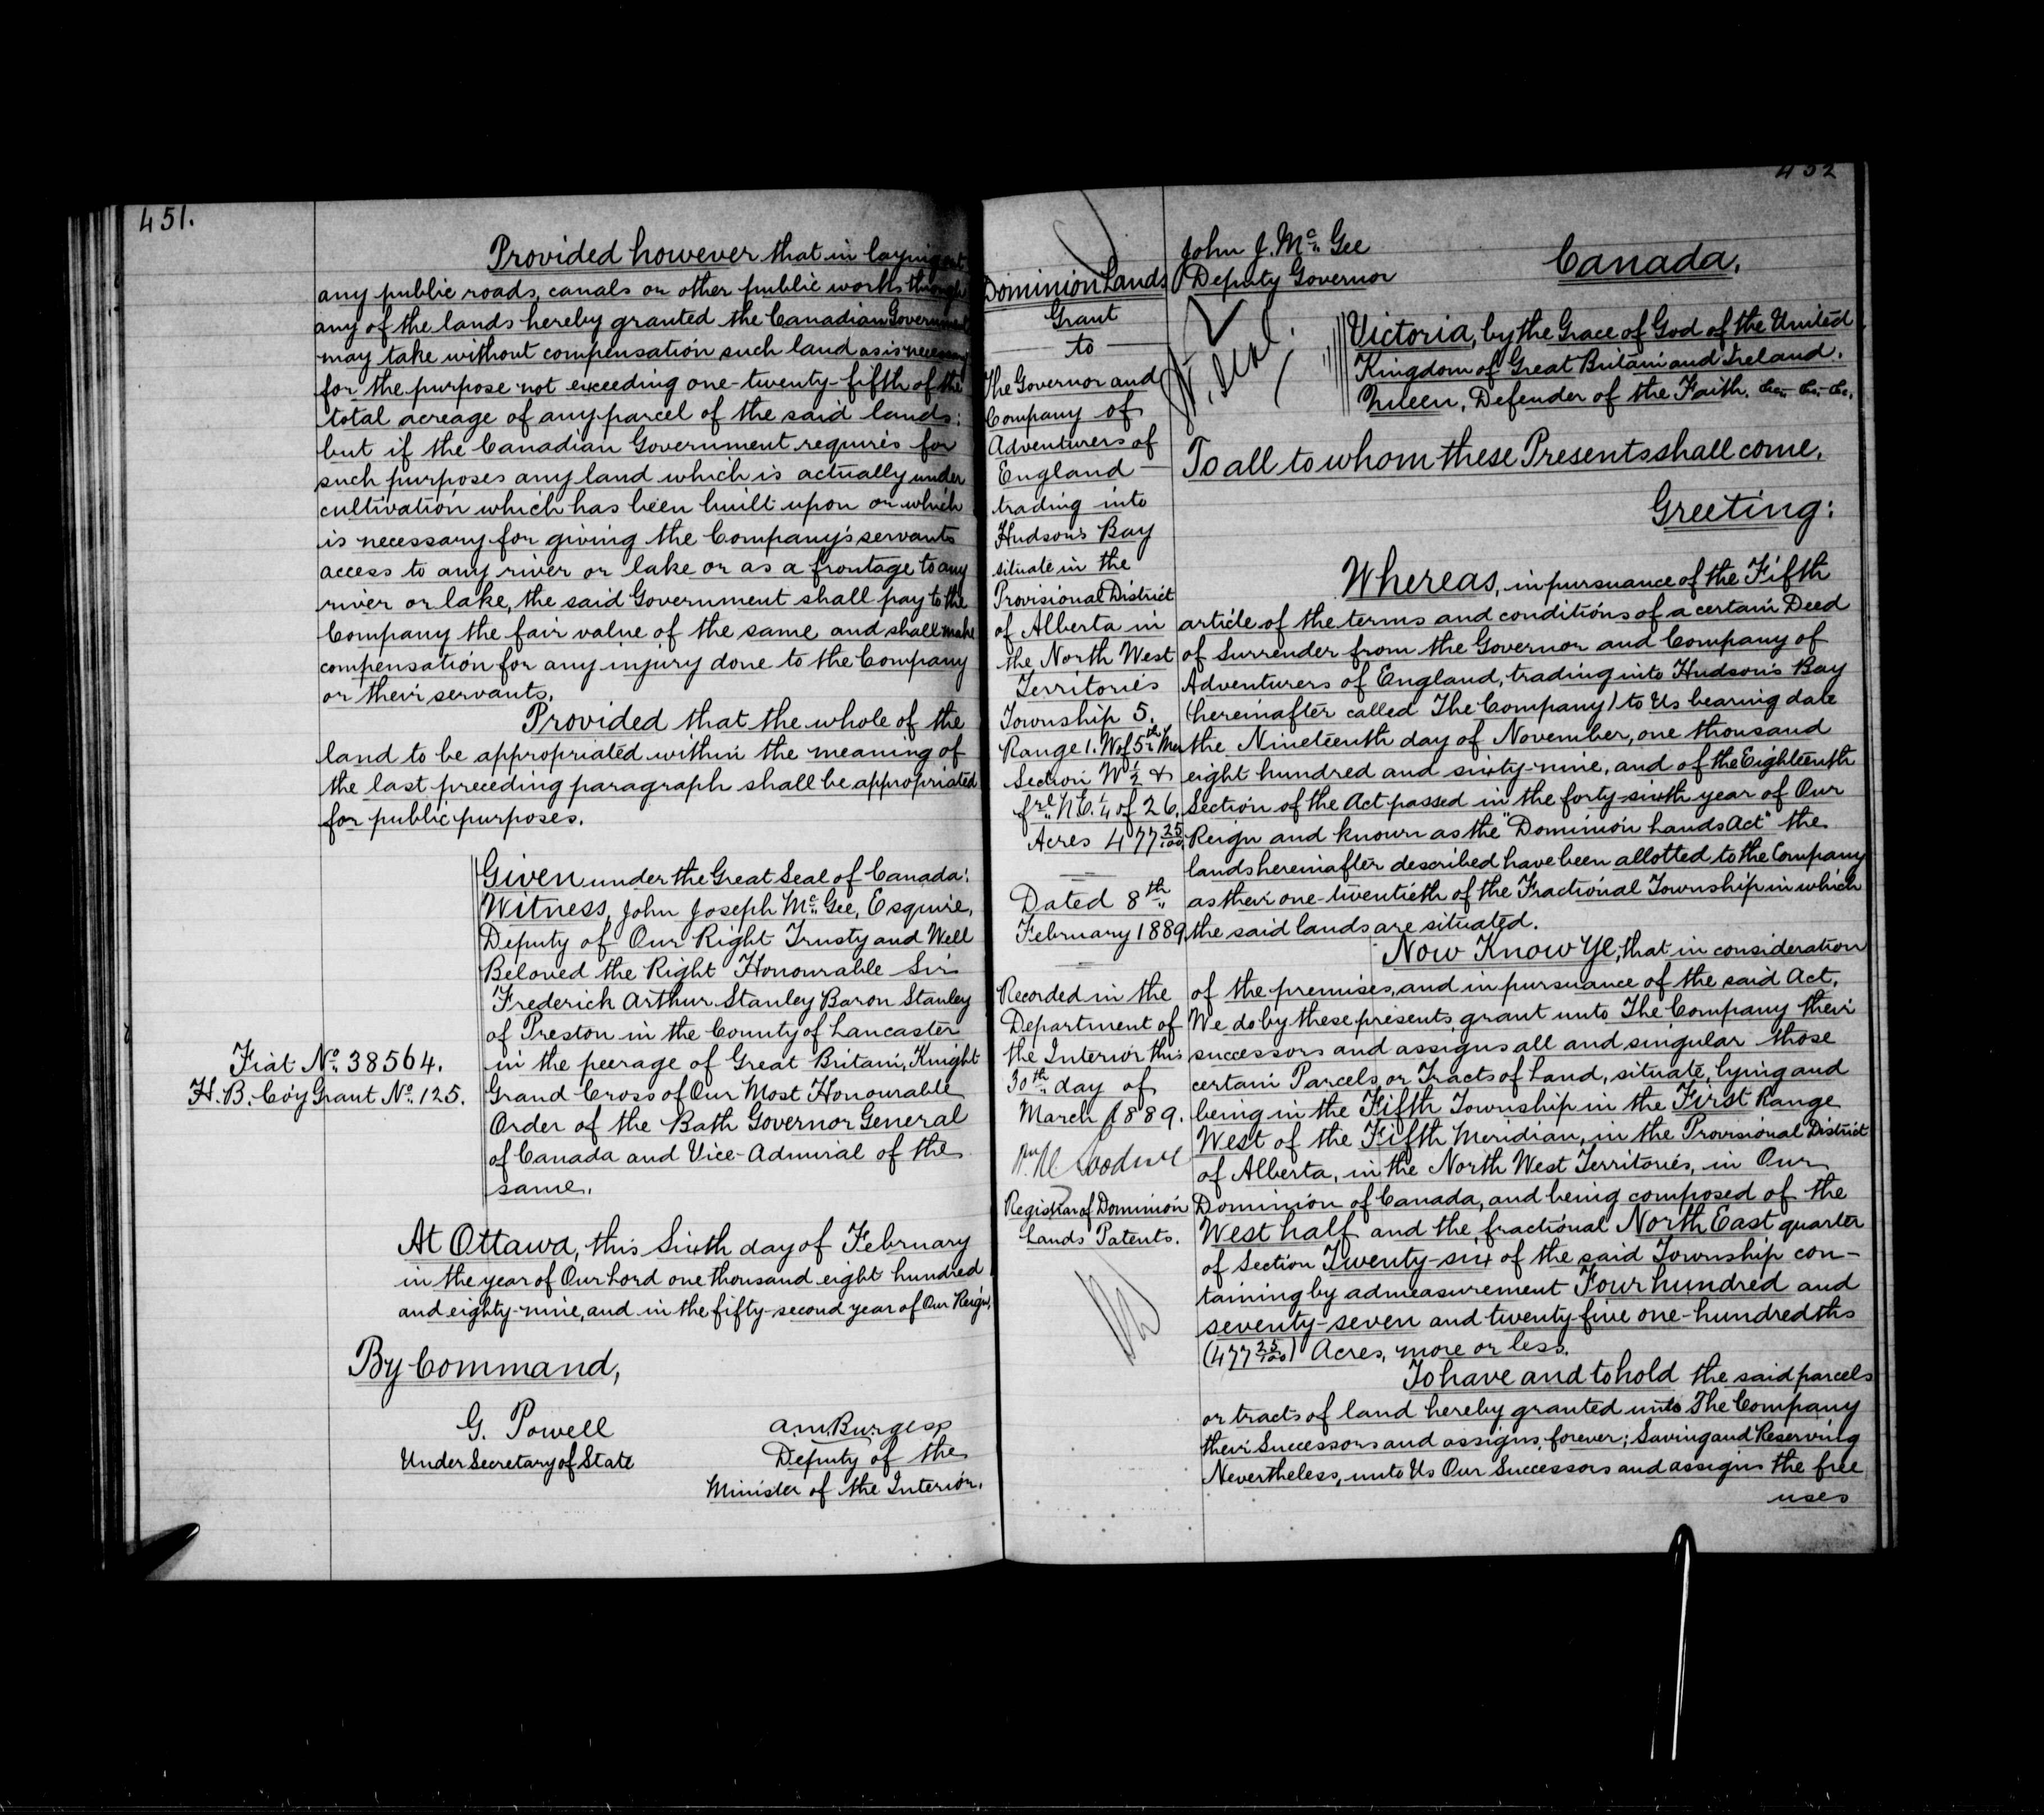 451.
Provided however that in laying out
any public roads, canals or other public works through
any of the lands hereby granted the Canadian Government
may take without compensation such land as is necessary
for the purpose not exceeding one-twenty-fifth of the
total acreage of any parcel of the said lands:
but if the Canadian Government requires for
such purposes any land which is actually under
cultivation which has been built upon or which
is necessary for giving the Company's servants
access to any river or lake or as a frontage to any
river or lake, the said Government shall pay to the
Company the fair value of the same and shall make
compensation for any injury done to the Company
or their servants.
Provided that the whole of the
land to be appropriated within the meaning of
the last preceding paragraph shall be appropriated
for public purposes.
Given under the Great Seal of Canada:
Witness, John Joseph Mc Gee, Esquire,
Deputy of Our Right Trusty and Well
Beloved the Right Honourable Sir
Frederick Arthur Stanley Baron Stanley
of Preston in the County of Lancaster
in the peerage of Great Britain, Knight
Grand Cross of Our Most Honourable
Order of the Bath Governor General
of Canada and Vice-Admiral of the
same.
Fiat No. 38564.
H. B. Co'y Grant No. 125.
At Ottawa, this Sixth day of February
in the year of Our Lord one thousand eight hundred
and eighty-nine, and in the fifty-second year of Our Reign.
By Command,
G. Powell
Under Secretary of State
A.M. Burgess
Deputy of the
Minister of the Interior.
452
Dominion Lands
Grant
to
The Governor and
Company of
Adventurers of
England
trading into
Hudson's Bay
situate in the
Provisional District
of Alberta in
the North West
Territories
Township 5.
Range 1. W of 5th Mer
Section W 1/2 &
frl. N.E. 1/4 of 26.
Acres 477 25/100
Dated 8th
February 1889
Recorded in the
Department of
the Interior this
30th day of
March 1889.
Registrar of Dominion
Lands Patents.
John J. Mc Gee
Deputy Governor
Canada.
Gt. Seal
Victoria, by the Grace of God of the United
Kingdom of Great Britain and Ireland.
Queen, Defender of the Faith. &c. &c. &c.
To all to whom these Presents shall come,
Greeting:
Whereas, in pursuance of the Fifth
article of the terms and conditions of a certain Deed
of Surrender from the Governor and Company of
Adventurers of England, trading into Hudson's Bay
(hereinafter called The Company) to Us bearing date
the Nineteenth day of November, one thousand
eight hundred and sixty-nine, and of the Eighteenth
Section of the Act passed in the forty-sixth year of Our
Reign and known as the "Dominion Lands Act" the
lands hereinafter described have been allotted to the Company
as their one-twentieth of the Fractional Township in which
the said lands are situated.
Now Know Ye, that in consideration
of the premises, and in pursuance of the said Act,
We do by these presents, grant unto The Company their
successors and assigns all and singular those
certain Parcels or Tracts of Land, situate, lying and
being in the Fifth Township in the First Range
West of the Fifth Meridian, in the Provisional District
of Alberta, in the North West Territories, in Our
Dominion of Canada, and being composed of the
West half and the fractional North East quarter
of Section Twenty-six of the said Township con-
taining by admeasurement Four hundred and
seventy-seven and twenty-five one-hundredths
(477 25/100) Acres, more or less.
To have and to hold the said parcels
or tracts of land hereby granted unto The Company
their Successors and assigns forever; Saving and Reserving
Nevertheless, unto Us Our Successors and assigns the free
uses